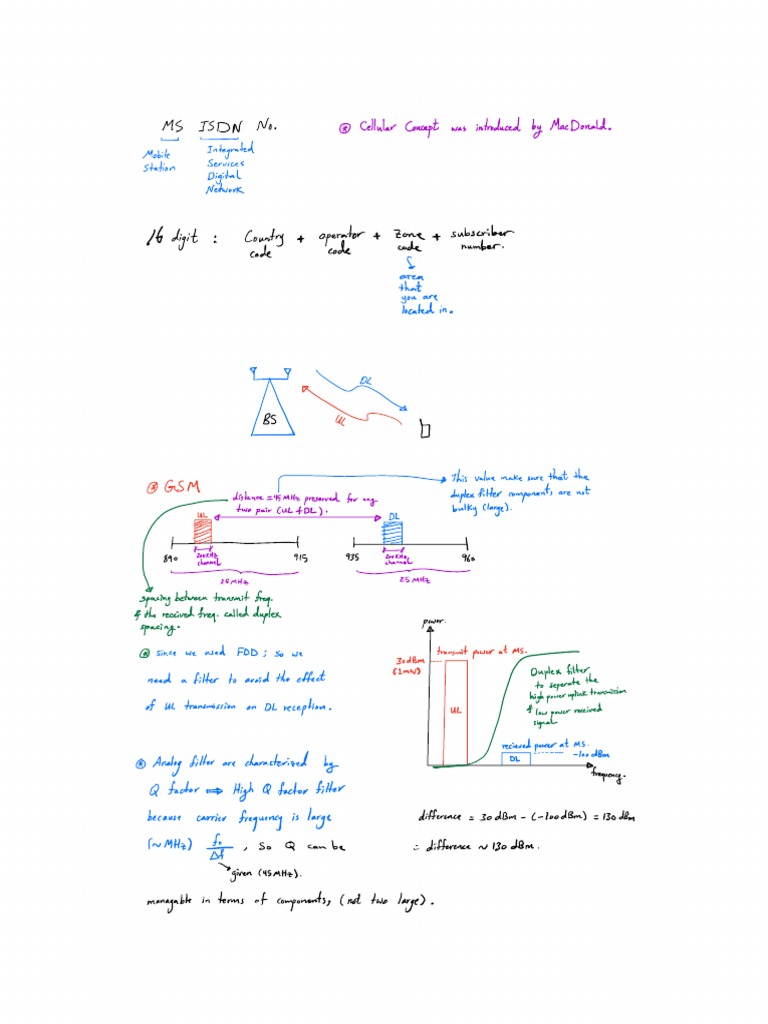 MS ISDN No.
Mobile
Station
Integrated
Services
Digital
Network
⊛ Cellular Concept was introduced by MacDonald.
16 digit : Country + operator + Zone + subscriber
code code code number.
area
that
you are
located in.
DL
UL
BS
⊛ GSM
distance = 45 MHz preserved for any
two pair (UL & DL).
This value make sure that the
duplex filter components are not
bulky (large).
UL
DL
890
200KHz
channel
915
935
200KHz
channel
960
25 MHz
25 MHz
spacing between transmit freq.
& the received freq. called duplex
spacing.
⊛ since we used FDD ; so we
need a filter to avoid the effect
of UL transmission on DL reception.
power.
transmit power at MS.
30dBm
(1mW)
UL
Duplex filter
to seperate the
high power uplink transmission
& low power received
signal
recieved power at MS.
-100 dBm
DL
frequency.
⊛ Analog filter are characterized by
Q factor ⟹ High Q factor filter
because carrier frequency is large
(~MHz) fo/Δf , so Q can be
given (45MHz).
managable in terms of components, (not two large).
difference = 30 dBm - (-100dBm) = 130 dBm
∴ difference ~ 130 dBm.